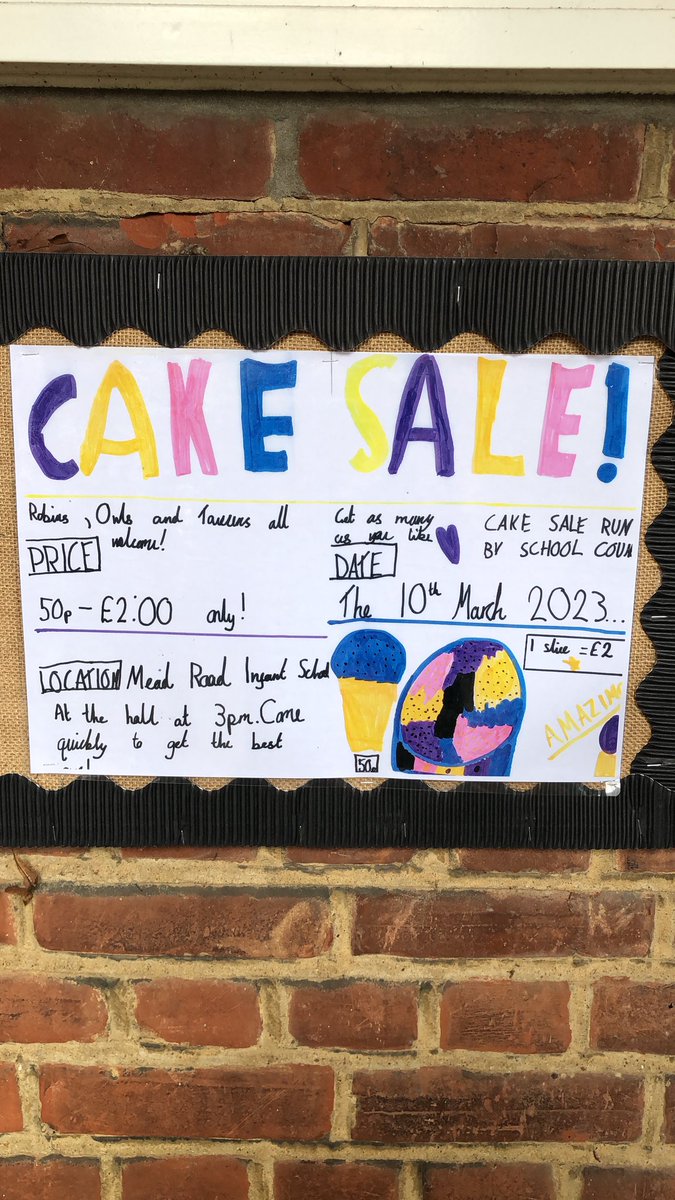 CAKE SALE!
Robins, Owls and all
welcome!
PRICE
50p - £2:00 only!
LOCATION Mead Road Infant School
At the hall at 3pm. Come
quickly to get the best
Get as many
as you like
CAKE SALE RUN
BY SCHOOL COUN
DATE
The 10th March 2023...
1 slice = £2
AMAZING
50p